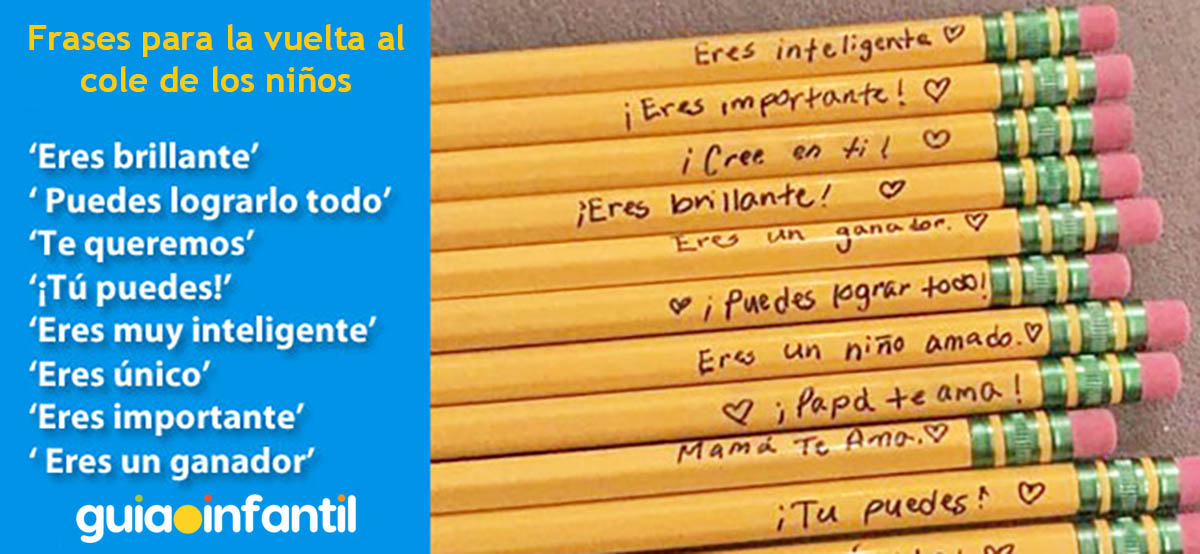 Frases para la vuelta al
cole de los niños
‘Eres brillante’
‘ Puedes lograrlo todo’
‘Te queremos’
‘¡Tú puedes!’
‘Eres muy inteligente’
‘Eres único’
‘Eres importante’
‘ Eres un ganador’
guiainfantil
Eres inteligente
¡Eres importante!
¡Cree en ti!
¡Eres brillante!
Eres un ganador.
¡Puedes lograr todo!
Eres un niño amado.
¡Papá te ama!
Mamá Te Ama.
¡Tu puedes!